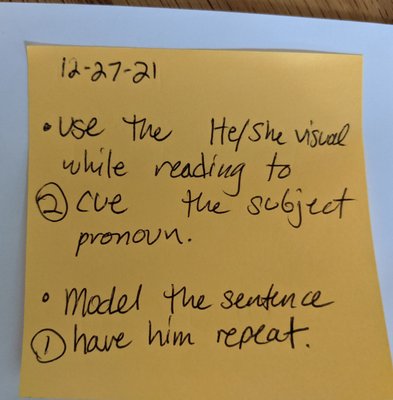 12-27-21
• Use the He/She visual
while reading to
② cue the subject
pronoun.
• Model the sentence
① have him repeat.